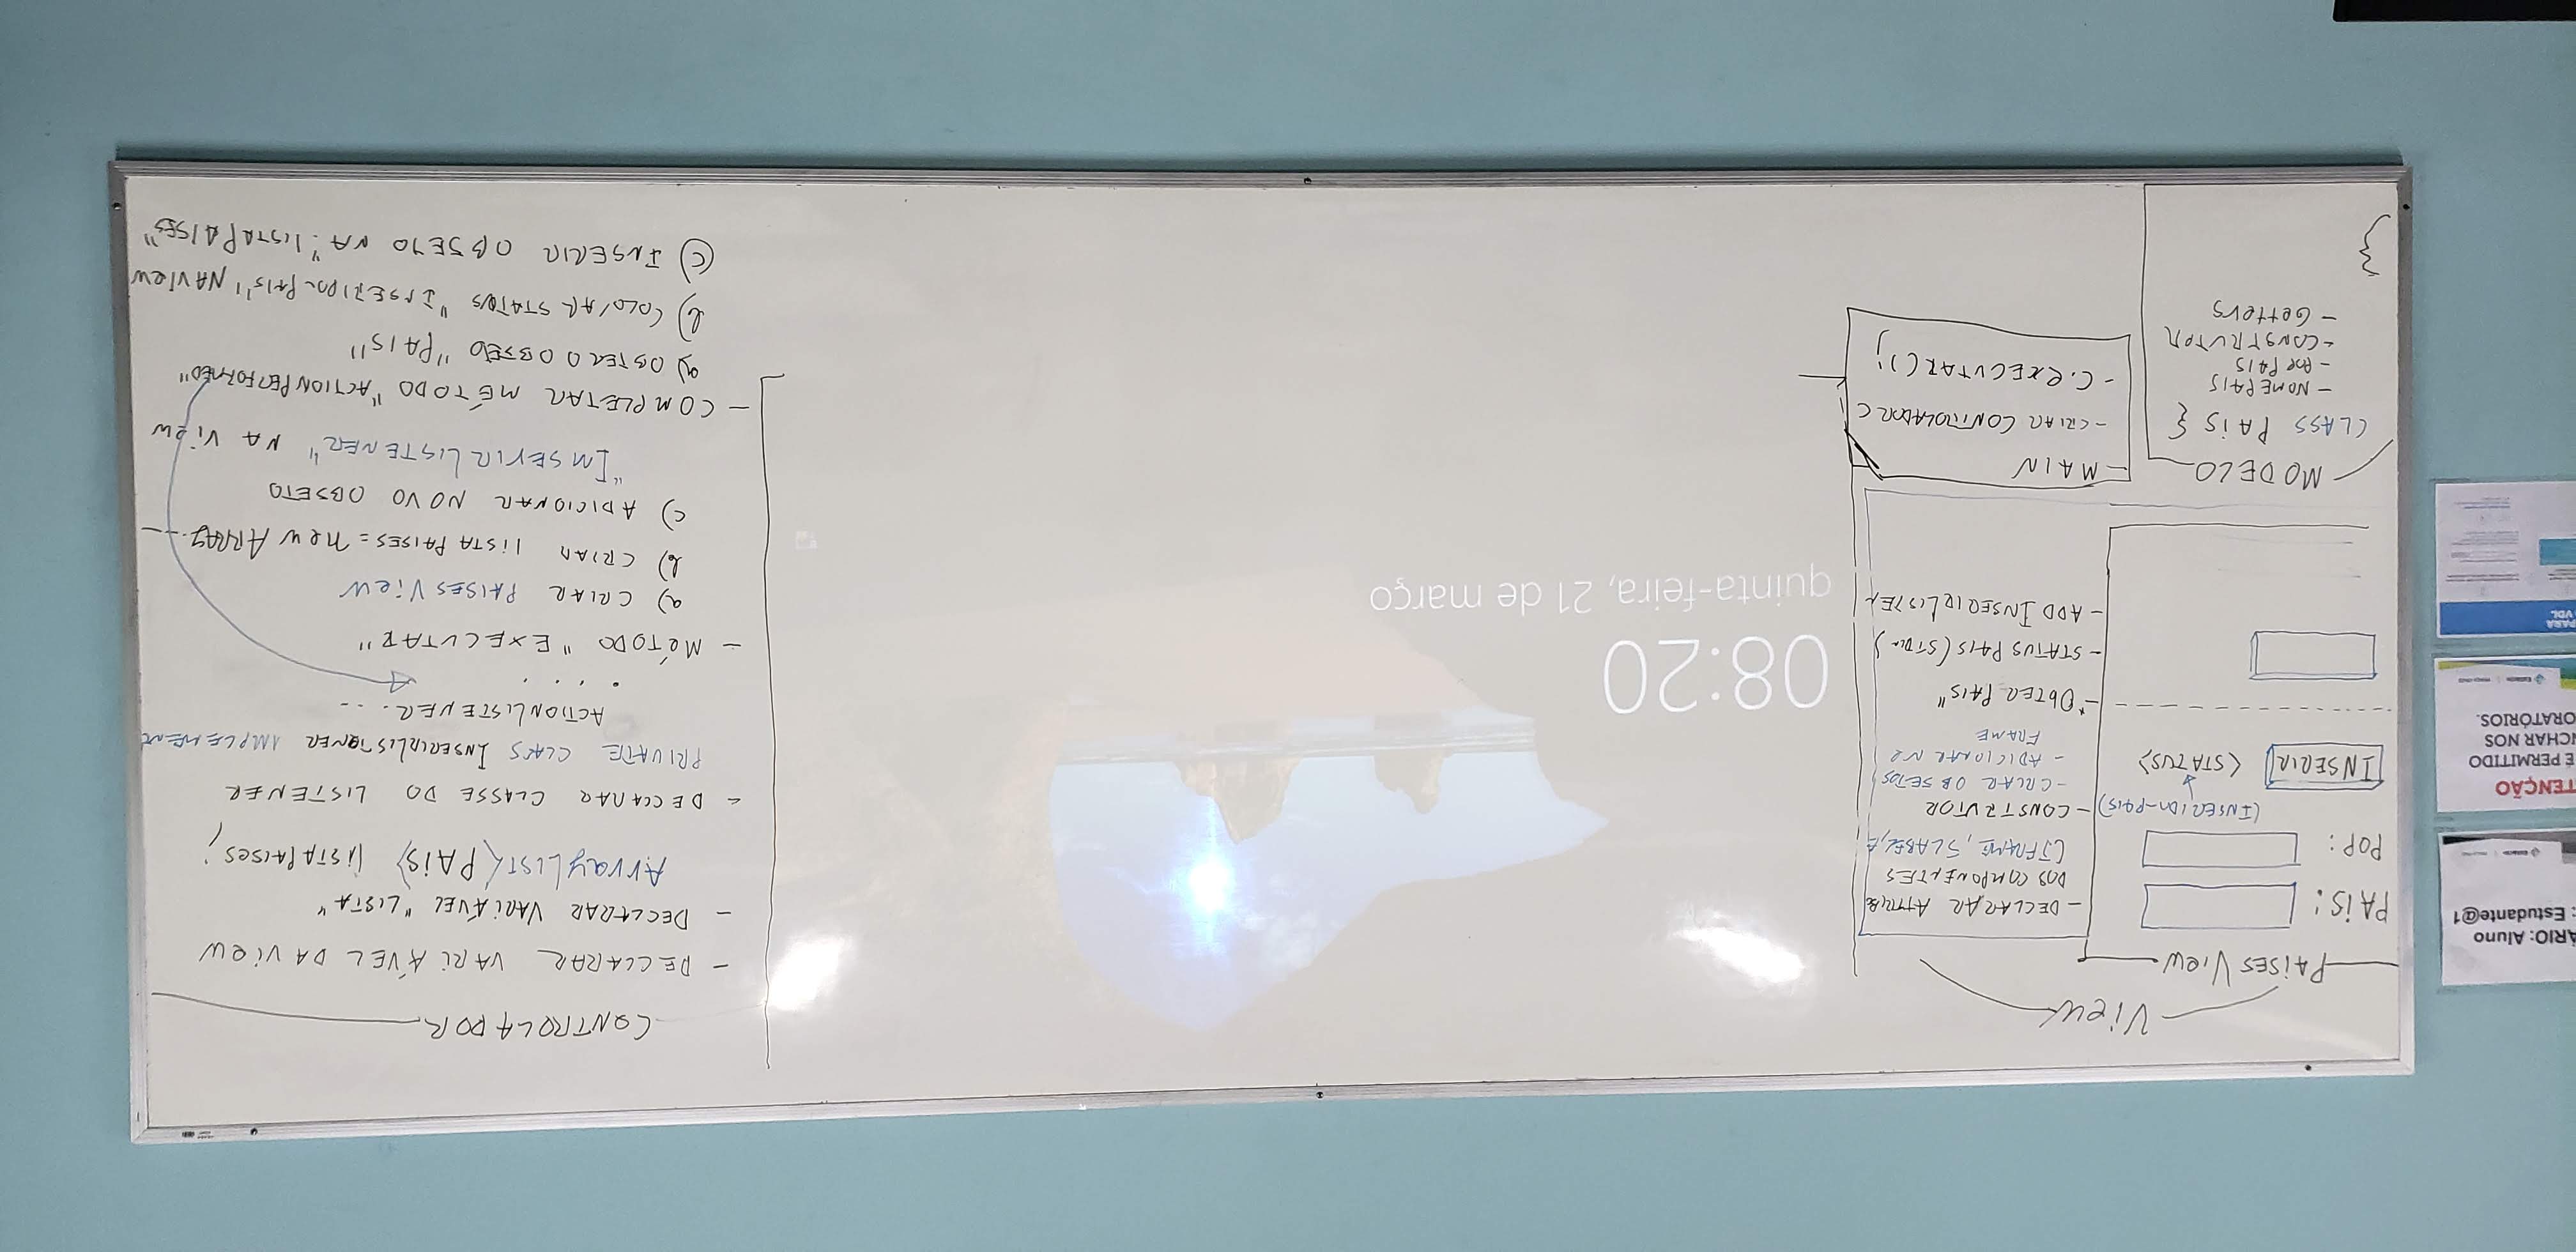 View
PAISES View
PAIS:
POP:
(INSERIDO-PAIS)
INSERIR <STATUS>
- DECLARAR ATTRIB
DOS COMPONENTES
(JFRAME, JLABEL, E
- CONSTRUTOR
- CRIAR OBJETOS
- ADICIONAR NO
FRAME
- "OBTER PAIS"
- STATUS PAIS (STRIN)
- ADD INSERIRLISTEN
MODELO
CLASS PAIS {
- NOMEPAIS
- POP PAIS
- CONSTRUTOR
- Getters
}
- MAIN
- CRIAR CONTROLADOR C
- C.eXECUTAR();
08:20
quinta-feira, 21 de março
CONTROLADOR
- DECLARAR VARIÁVEL DA View
- DECLARAR VARIÁVEL "LISTA"
ArrayLIST<PAIS> listaPAISES;
- DECLARAR CLASSE DO LISTENER
PRIVATE CLASS INSERIRLISTENER IMPLEMENT
ACTIONLISTENER...
. . . .
- MÉTODO "EXECUTAR"
a) CRIAR PAISES View
b) CRIAR lISTA PAISES = new ARRAY---
c) ADICIONAR NOVO OBJETO
"INSERIR LISTENER" NA View
- COMPLETAR MÉTODO "ACTIONPERFORMED"
a) OBTER O OBJETO "PAIS"
b) COLOCAR STATUS "INSERIDO-PAIS" NA View
c) INSERIR OBJETO NA "lISTAPAISES"
ÁRIO: Aluno
: Estudante@1
Estácio
TENÇÃO
É PERMITIDO
NCHAR NOS
ORATÓRIOS.
Estácio
PARA
VDI.